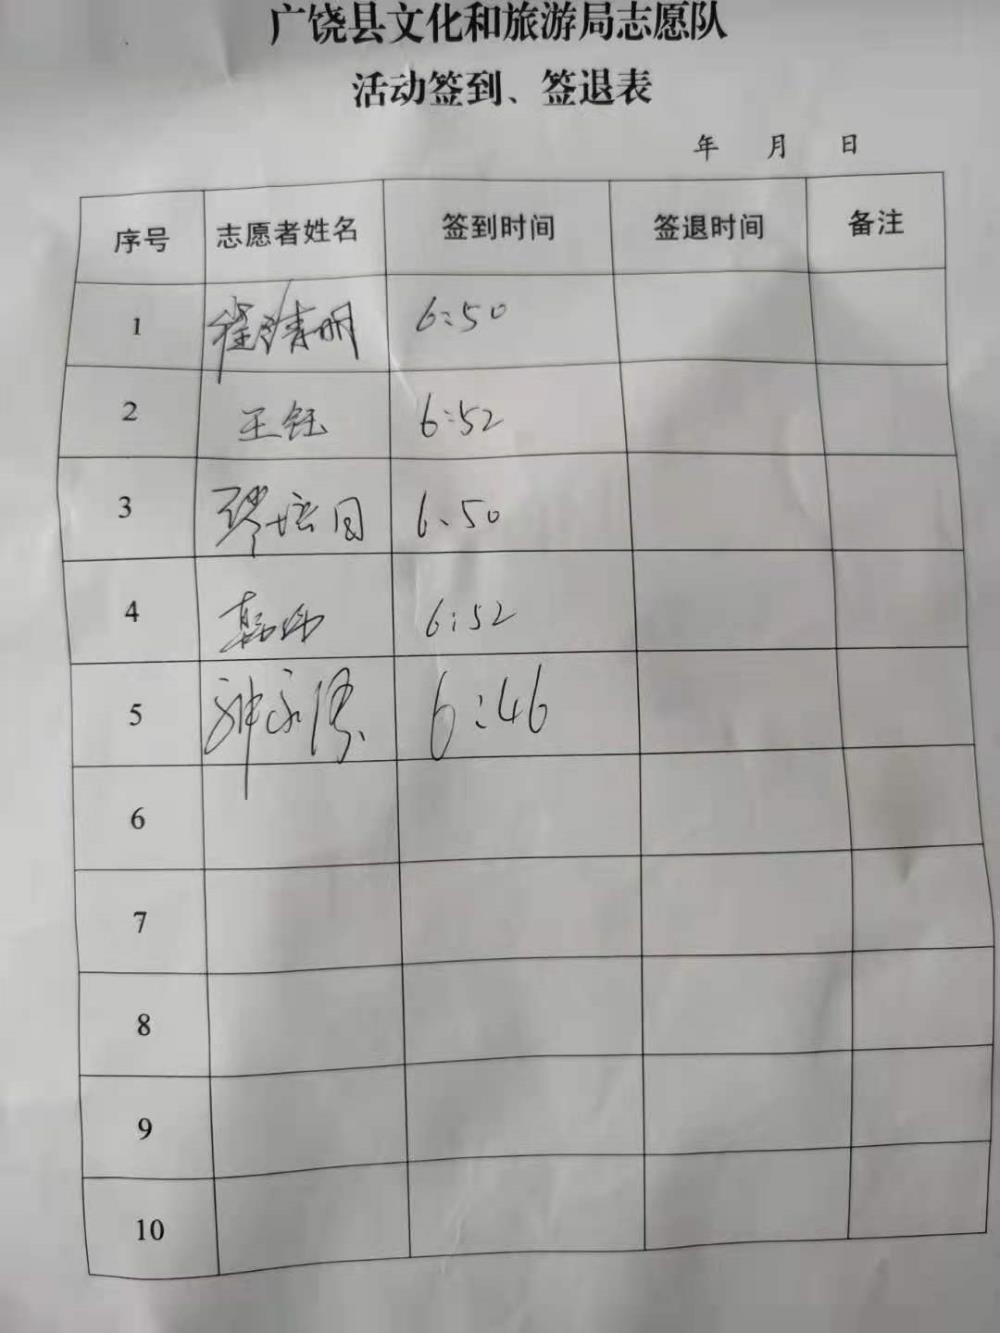 广饶县文化和旅游局志愿队
活动签到、签退表
年 月 日
序号 志愿者姓名 签到时间 签退时间 备注
1 6:50
2 王钰 6:52
3 培国 6:50
4 6:52
5 永 6:46
6
7
8
9
10